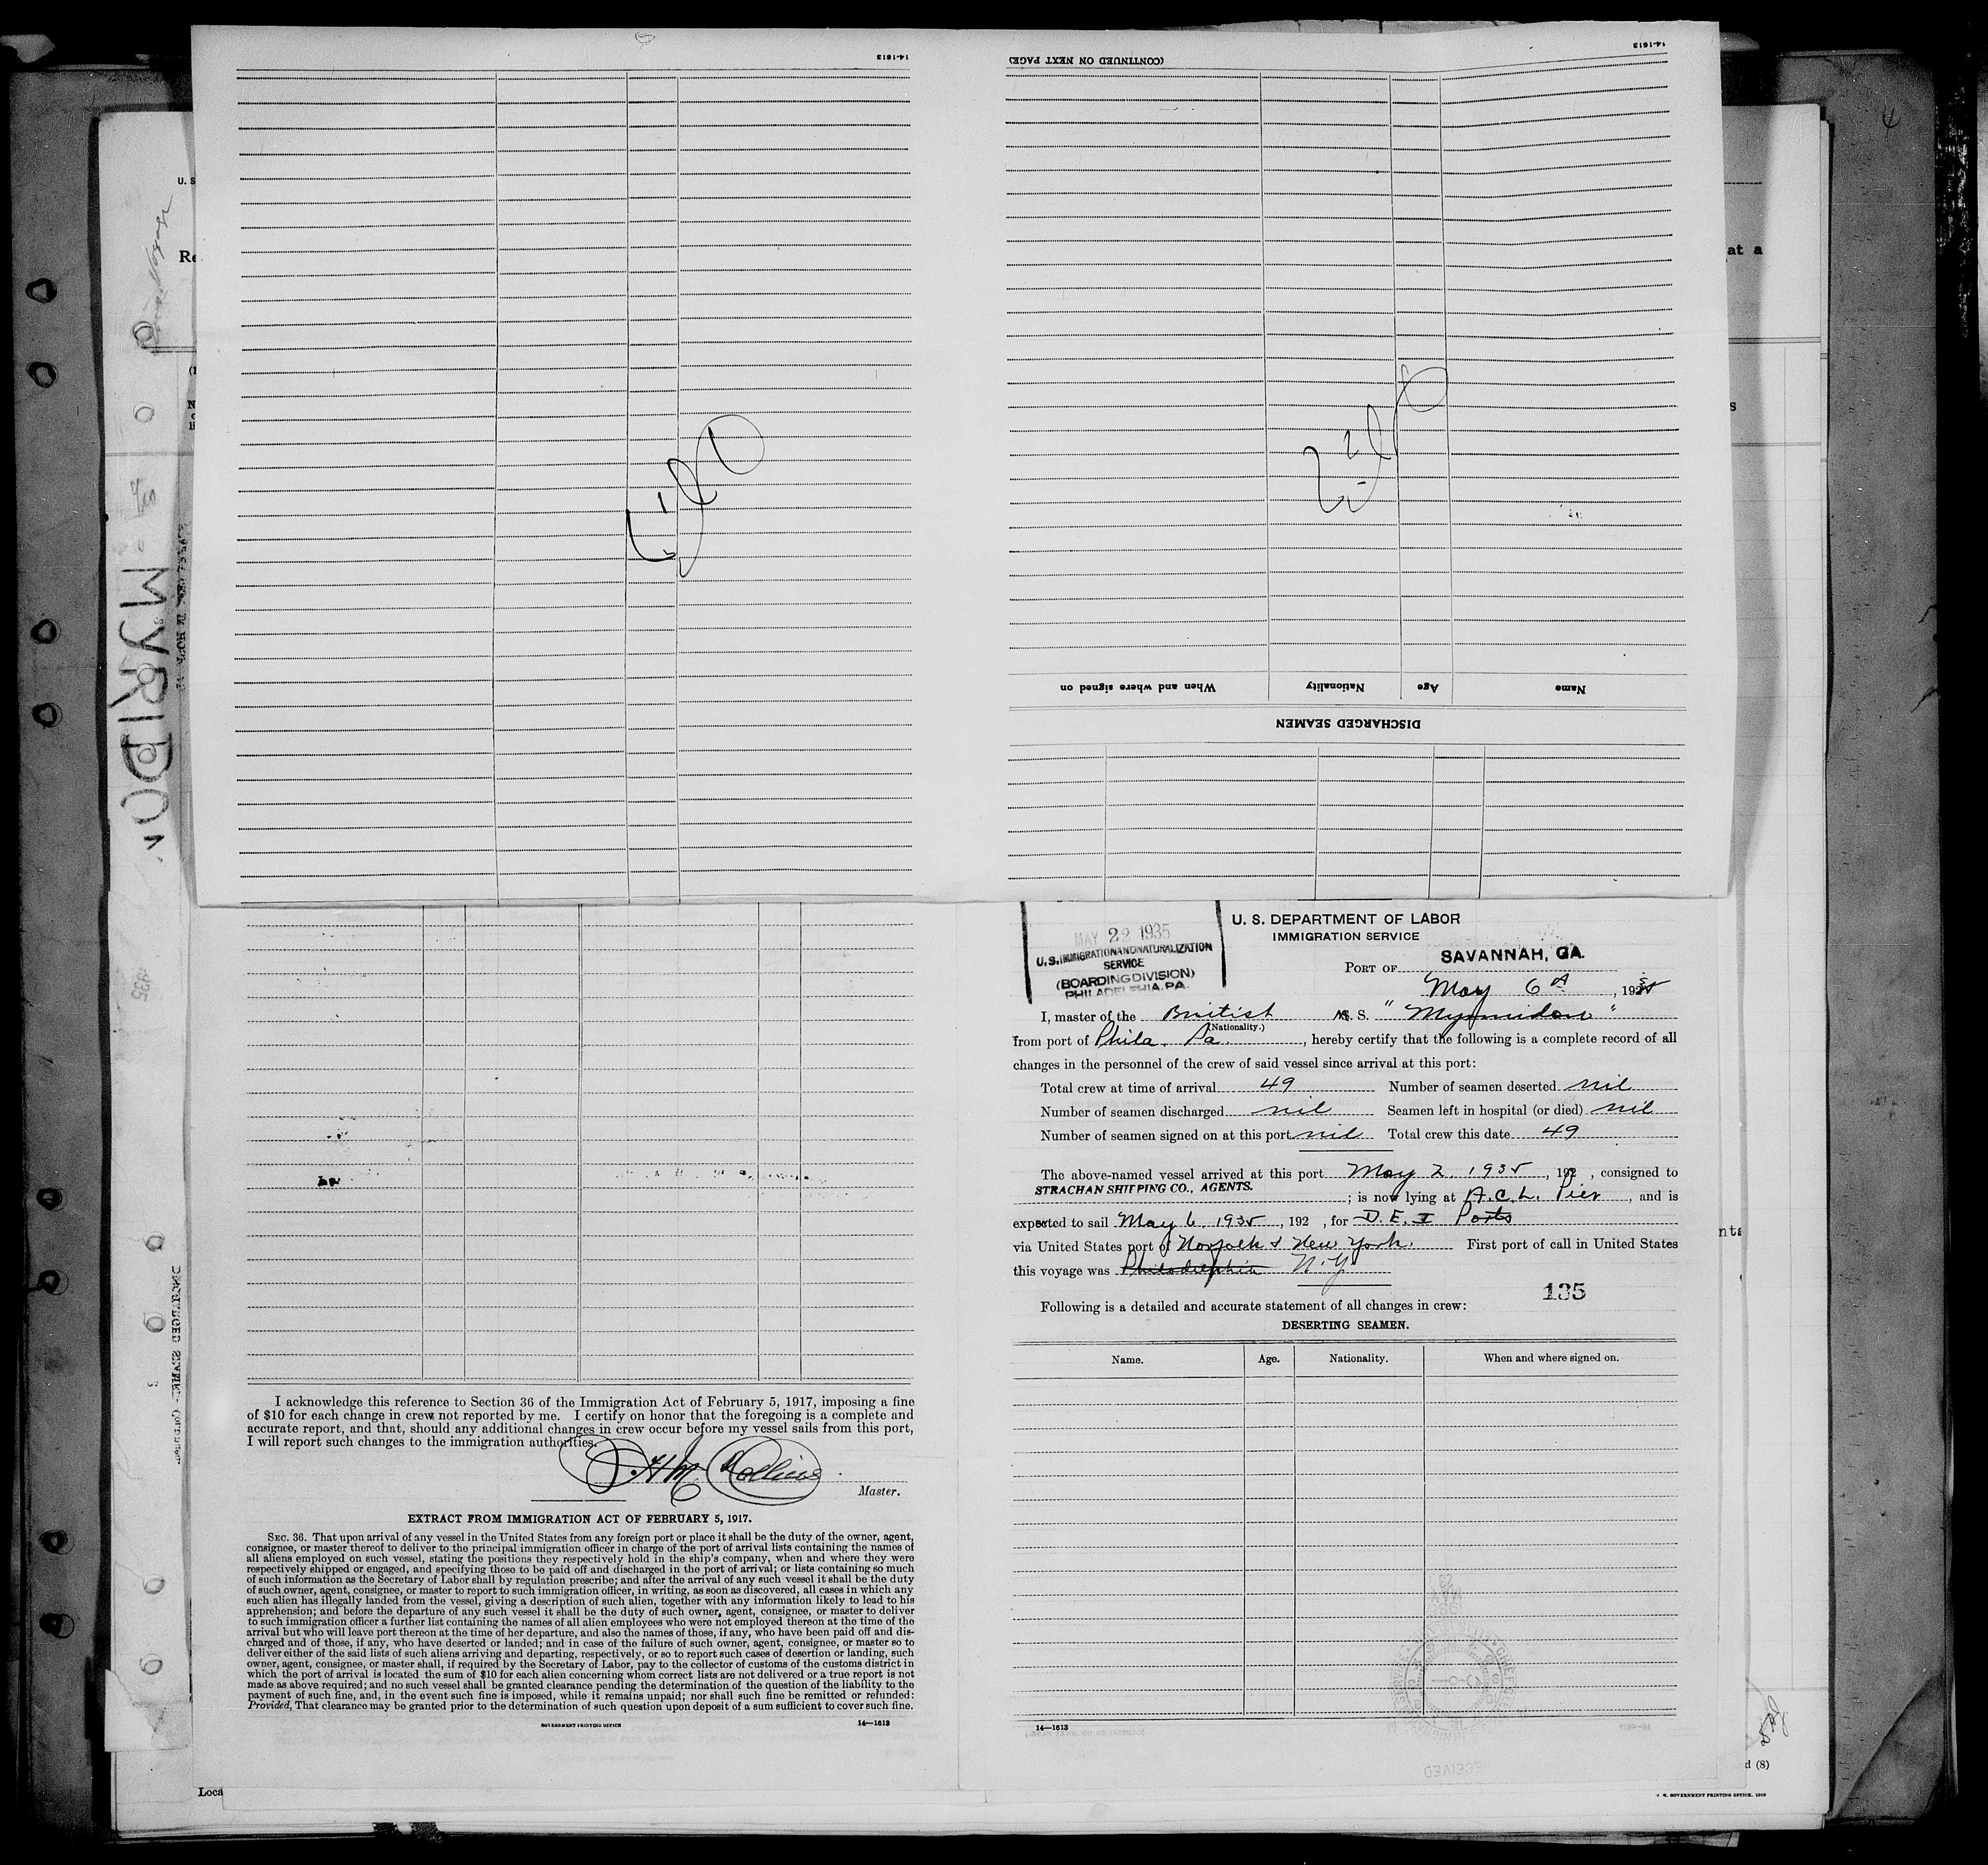 14-1613
(CONTINUED ON NEXT PAGE)
14-1613
4
U. S
Re
at a
MYRIDON
Name
Age
Nationality
When and where signed on
DISCHARGED SEAMEN
MAY 22 1935
U.S. IMMIGRATION AND NATURALIZATION
SERVICE
(BOARDING DIVISION)
PHILADELPHIA, PA.
U. S. DEPARTMENT OF LABOR
IMMIGRATION SERVICE
PORT OF SAVANNAH, GA.
May 6th, 1935
I, master of the British M. S. "Myrmidon"
(Nationality.)
from port of Phila. Pa., hereby certify that the following is a complete record of all
changes in the personnel of the crew of said vessel since arrival at this port:
Total crew at time of arrival 49 Number of seamen deserted nil
Number of seamen discharged nil Seamen left in hospital (or died) nil
Number of seamen signed on at this port nil Total crew this date 49
The above-named vessel arrived at this port May 2. 1935, 192 , consigned to
STRACHAN SHIPPING CO., AGENTS. ; is now lying at A.C.L. Pier, and is
expected to sail May 6, 1935, 192 , for D. E. I Ports
via United States port of Norfolk & New York. First port of call in United States
this voyage was Philadelphia N.Y.
135
Following is a detailed and accurate statement of all changes in crew:
DESERTING SEAMEN.
Name. Age. Nationality. When and where signed on.
14—1613
I acknowledge this reference to Section 36 of the Immigration Act of February 5, 1917, imposing a fine
of $10 for each change in crew not reported by me. I certify on honor that the foregoing is a complete and
accurate report, and that, should any additional changes in crew occur before my vessel sails from this port,
I will report such changes to the immigration authorities.
Master.
EXTRACT FROM IMMIGRATION ACT OF FEBRUARY 5, 1917.
SEC. 36. That upon arrival of any vessel in the United States from any foreign port or place it shall be the duty of the owner, agent,
consignee, or master thereof to deliver to the principal immigration officer in charge of the port of arrival lists containing the names of
all aliens employed on such vessel, stating the positions they respectively hold in the ship's company, when and where they were
respectively shipped or engaged, and specifying those to be paid off and discharged in the port of arrival; or lists containing so much
of such information as the Secretary of Labor shall by regulation prescribe; and after the arrival of any such vessel it shall be the duty
of such owner, agent, consignee, or master to report to such immigration officer, in writing, as soon as discovered, all cases in which any
such alien has illegally landed from the vessel, giving a description of such alien, together with any information likely to lead to his
apprehension; and before the departure of any such vessel it shall be the duty of such owner, agent, consignee, or master to deliver
to such immigration officer a further list containing the names of all alien employees who were not employed thereon at the time of the
arrival but who will leave port thereon at the time of her departure, and also the names of those, if any, who have been paid off and dis-
charged and of those, if any, who have deserted or landed; and in case of the failure of such owner, agent, consignee, or master so to
deliver either of the said lists of such aliens arriving and departing, respectively, or so to report such cases of desertion or landing, such
owner, agent, consignee, or master shall, if required by the Secretary of Labor, pay to the collector of customs of the customs district in
which the port of arrival is located the sum of $10 for each alien concerning whom correct lists are not delivered or a true report is not
made as above required; and no such vessel shall be granted clearance pending the determination of the question of the liability to the
payment of such fine, and, in the event such fine is imposed, while it remains unpaid; nor shall such fine be remitted or refunded:
Provided, That clearance may be granted prior to the determination of such question upon deposit of a sum sufficient to cover such fine.
GOVERNMENT PRINTING OFFICE
14—1613
Loca
d (8)
RECEIVED